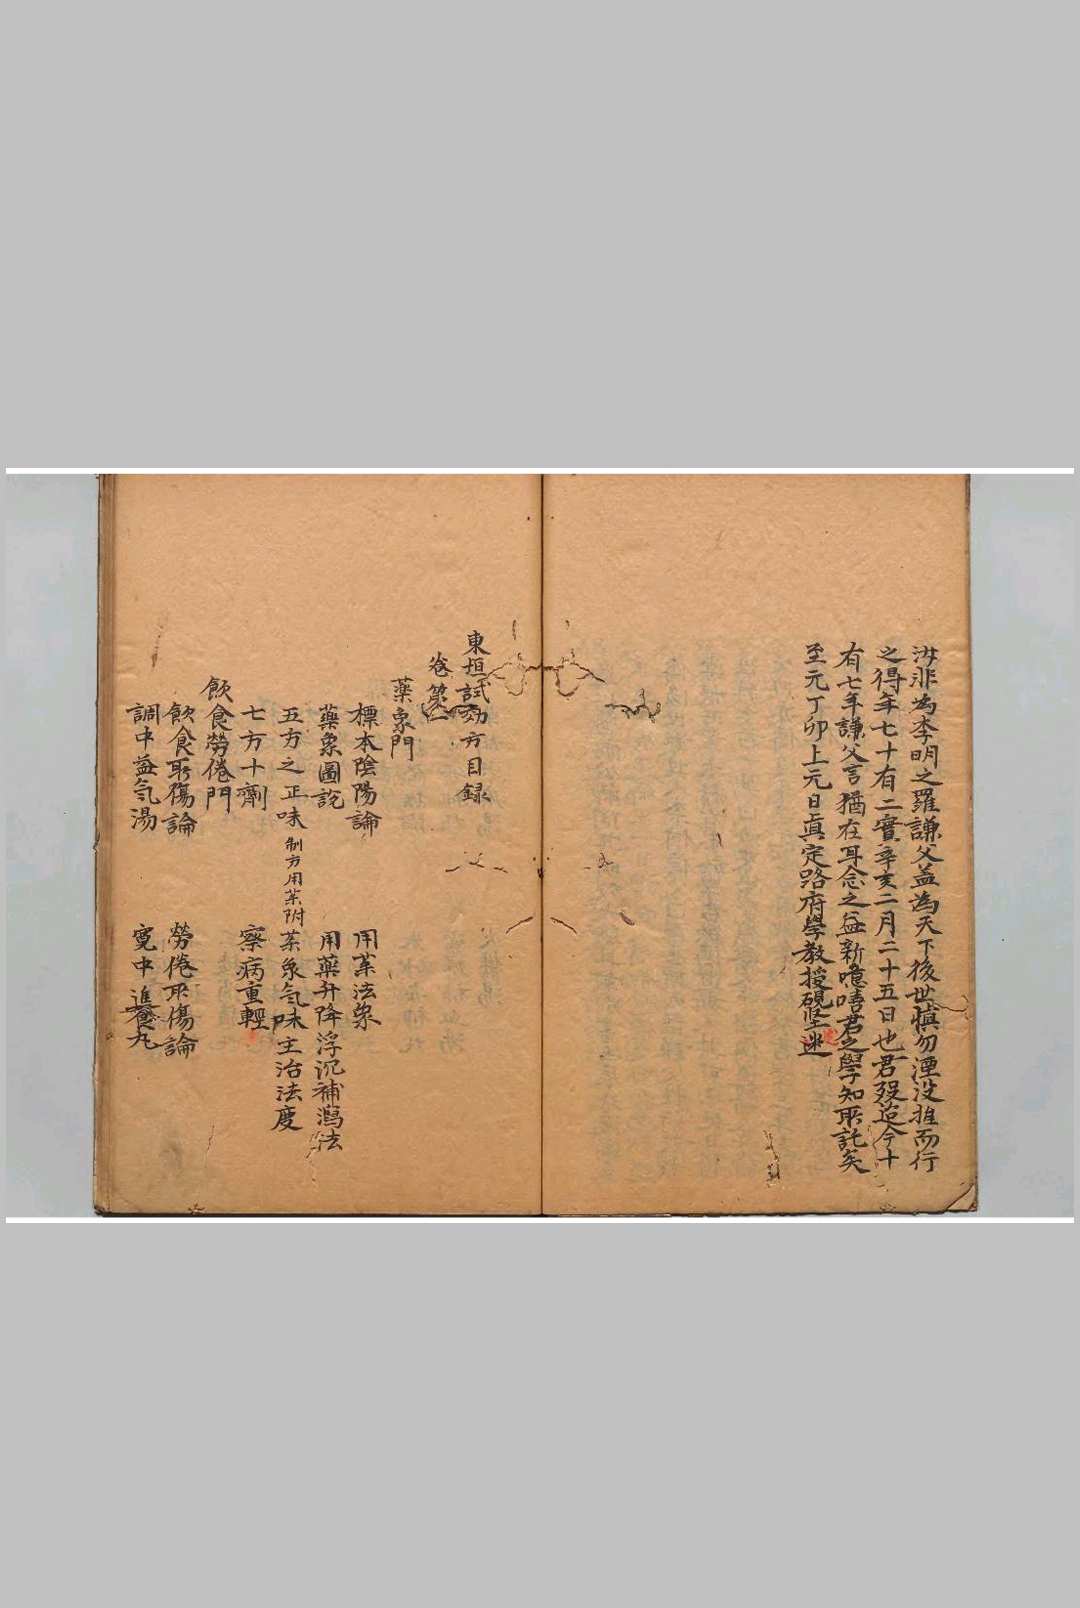 汝非為李明之羅謙父盖為天下後世慎勿湮没推而行
之得年七十有二實辛亥二月二十五日也君殁迨今十
有七年謙父言猶在耳念之益新噫嘻君之學知所託矣
至元丁卯上元日眞定路府學教授硯堅述
東垣試効方目録
卷第一
藥象門
標本陰陽論 用藥法象
藥象圖説 用藥升降浮沉補瀉法
五方之正味 制方用藥附 藥象氣味主治法度
七方十劑 察病重輕
飲食勞倦門
飲食所傷論 勞倦所傷論
調中益氣湯 寛中進食丸